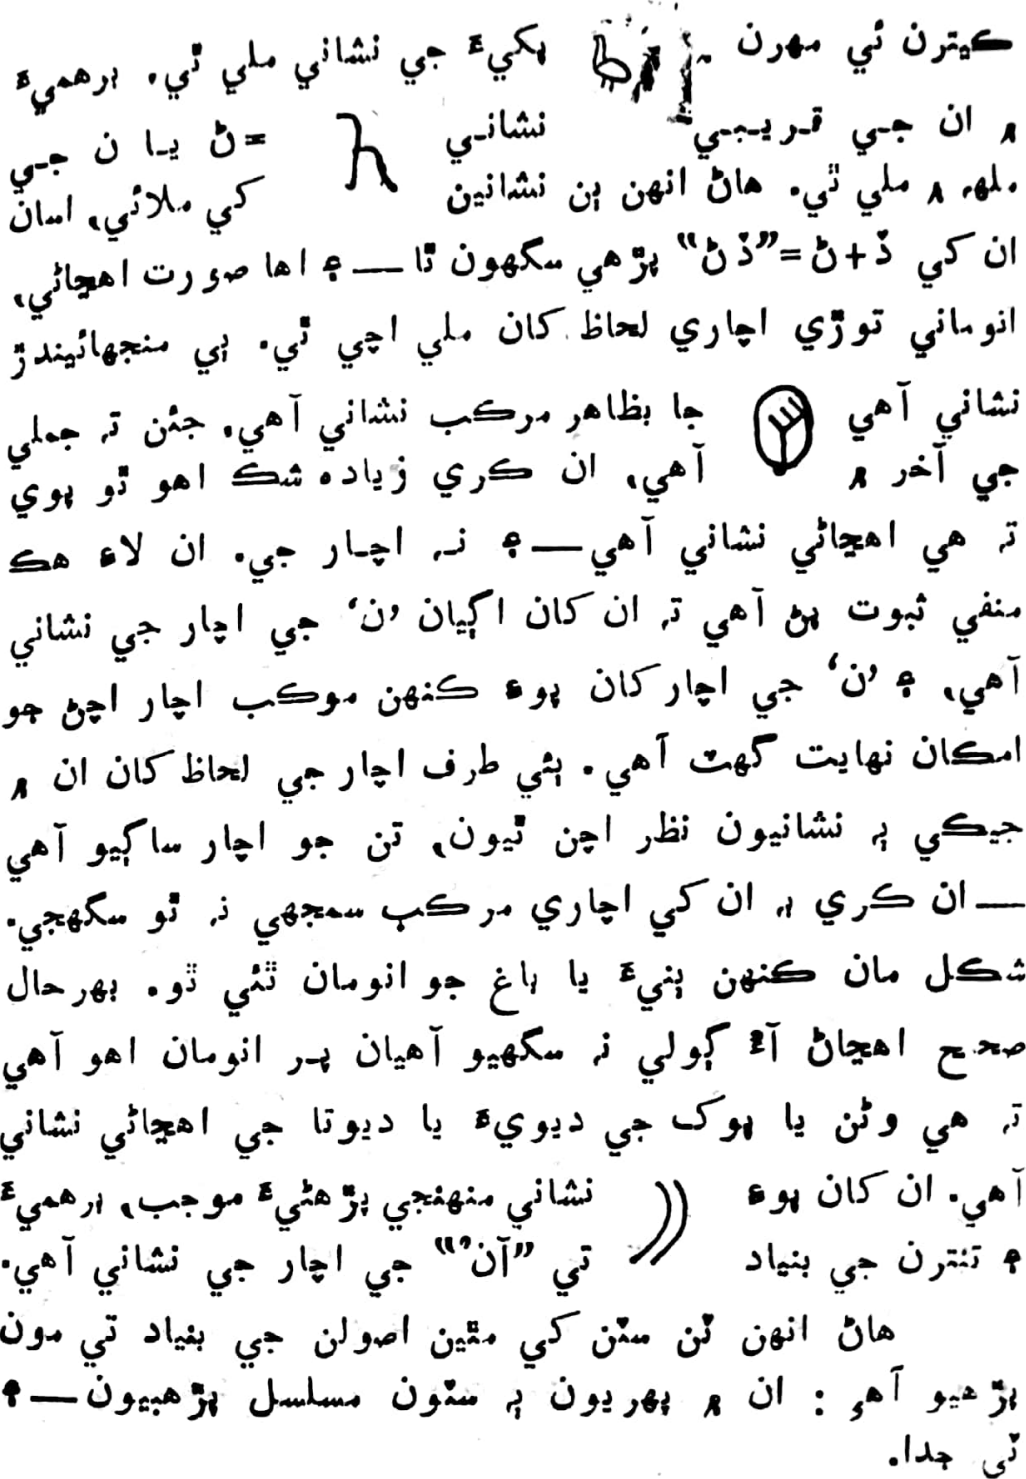 ڪيترن ئي مهرن ۾ پکيءَ جي نشاني ملي ٿي. برهميءَ
۾ ان جي قريبي نشاني =ڻ يا ن جي
ملهہ ۾ ملي ٿي. هاڻ انهن ٻن نشانين کي ملائي، اسان
ان کي ڏ+ڻ=”ڏڻ“ پڙهي سگهون ٿا — ۽ اها صورت اهڃاڻي،
انوماني توڙي اچاري لحاظ کان ملي اچي ٿي. ٻي منجهائيندڙ
نشاني آهي جا بظاهر مرڪب نشاني آهي. جئن تہ جملي
جي آخر ۾ آهي، ان ڪري زياده شڪ اهو ٿو پوي
تہ هي اهڃاڻي نشاني آهي — ۽ نہ اچار جي. ان لاءِ هڪ
منفي ثبوت پڻ آهي تہ ان کان اڳيان ’ن‘ جي اچار جي نشاني
آهي، ۽ ’ن‘ جي اچار کان پوءِ ڪنهن موڪب اچار اچڻ جو
امڪان نهايت گهٽ آهي. ٻئي طرف اچار جي لحاظ کان ان ۾
جيڪي ٻہ نشانيون نظر اچن ٿيون، تن جو اچار ساڳيو آهي
— ان ڪري بہ ان کي اچاري مرڪب سمجهي نہ ٿو سگهجي.
شڪل مان ڪنهن ٻنيءَ يا باغ جو انومان ٿئي ٿو. بهرحال
صحيح اهڃاڻ آءٌ ڳولي نہ سگهيو آهيان پر انومان اهو آهي
تہ هي وڻن يا پوک جي ديويءَ يا ديوتا جي اهڃاڻي نشاني
آهي. ان کان پوءِ نشاني منهنجي پڙهڻيءَ موجب، برهميءَ
۽ تنترن جي بنياد تي ”آن“ جي اچار جي نشاني آهي.
هاڻ انهن ٽن سٽن کي مٿين اصولن جي بنياد تي مون
پڙهيو آهي: ان ۾ پهريون ٻہ سٽون مسلسل پڙهبيون — ۽
ٽي جدا.